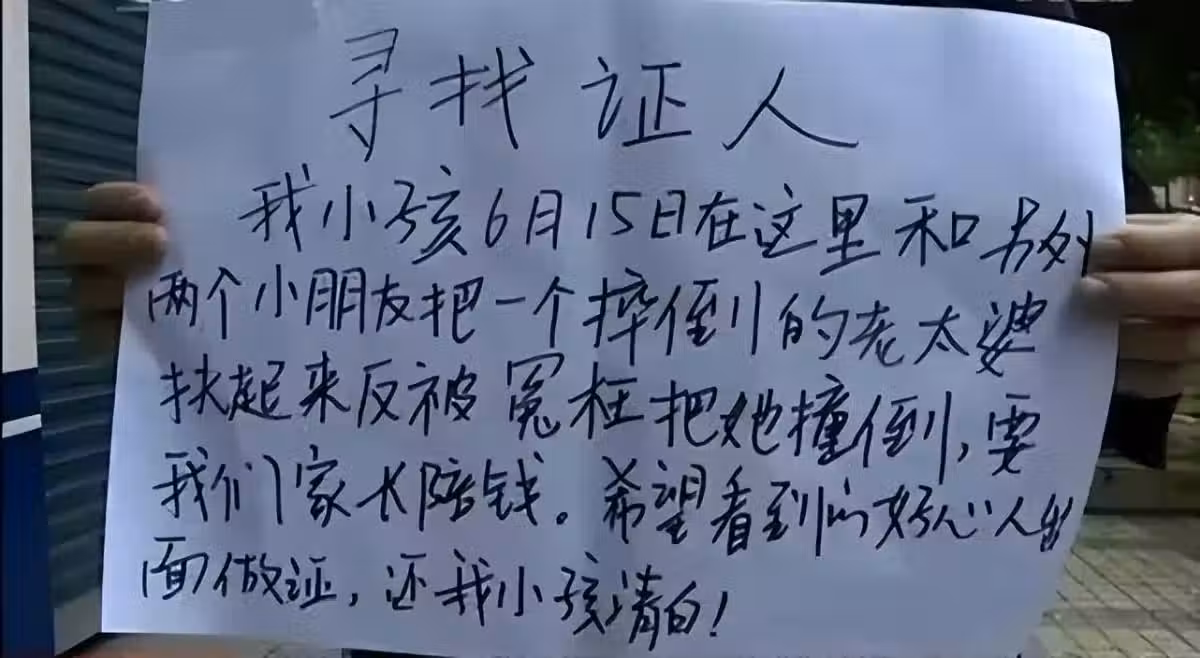 寻找证人
我小孩6月15日在这里和另外
两个小朋友把一个摔倒的老太婆
扶起来反被冤枉把她撞倒,要
我们家长陪钱。希望看到的好心人出
面做证,还我小孩清白!